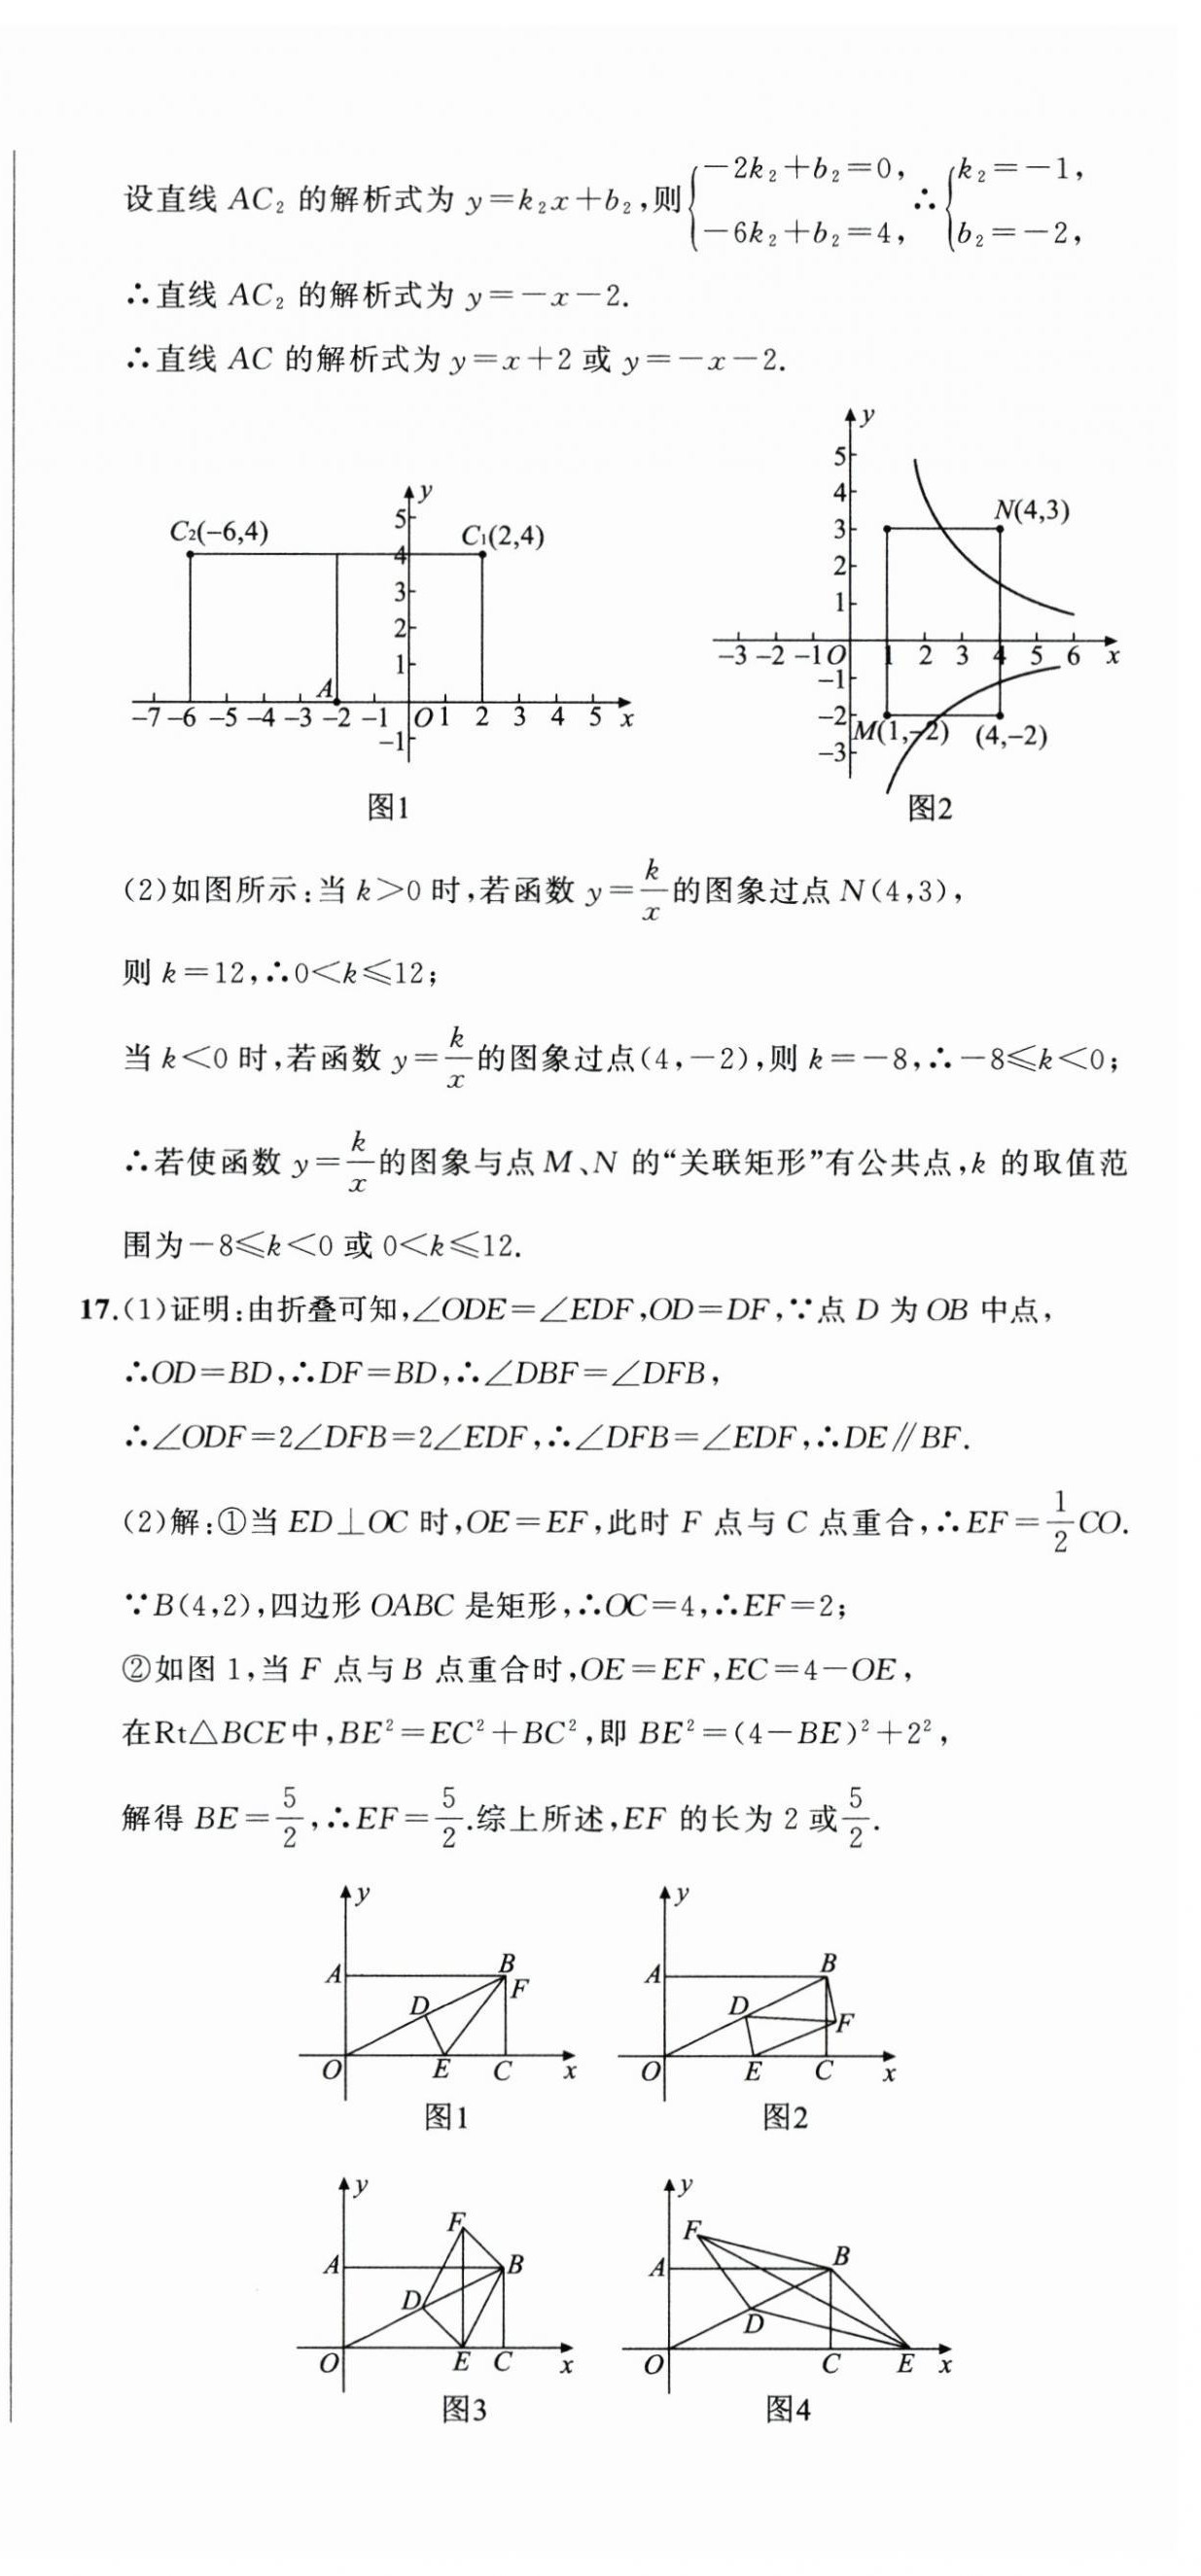 设直线 AC₂ 的解析式为 y=k₂x+b₂,则{−2k₂+b₂=0, −6k₂+b₂=4, ∴{k₂=−1, b₂=−2,
∴直线 AC₂ 的解析式为 y=−x−2.
∴直线 AC 的解析式为 y=x+2 或 y=−x−2.
y
5
C₂(−6,4) C₁(2,4)
4
3
2
1
A
−7 −6 −5 −4 −3 −2 −1 O 1 2 3 4 5 x
−1
图1
y
5
4
N(4,3)
3
2
1
−3 −2 −1 O 1 2 3 4 5 6 x
−1
−2
M(1,−2) (4,−2)
−3
图2
(2)如图所示:当 k>0 时,若函数 y=k/x 的图象过点 N(4,3),
则 k=12,∴0<k≤12;
当 k<0 时,若函数 y=k/x 的图象过点(4,−2),则 k=−8,∴−8≤k<0;
∴若使函数 y=k/x 的图象与点 M、N 的“关联矩形”有公共点,k 的取值范
围为−8≤k<0 或 0<k≤12.
17.(1)证明:由折叠可知,∠ODE=∠EDF,OD=DF,∵点 D 为 OB 中点,
∴OD=BD,∴DF=BD,∴∠DBF=∠DFB,
∴∠ODF=2∠DFB=2∠EDF,∴∠DFB=∠EDF,∴DE∥BF.
(2)解:①当 ED⊥OC 时,OE=EF,此时 F 点与 C 点重合,∴EF=1/2 CO.
∵B(4,2),四边形 OABC 是矩形,∴OC=4,∴EF=2;
②如图 1,当 F 点与 B 点重合时,OE=EF,EC=4−OE,
在Rt△BCE中,BE²=EC²+BC²,即 BE²=(4−BE)²+2²,
解得 BE=5/2,∴EF=5/2.综上所述,EF 的长为 2 或5/2.
y
A B
F
D
O E C x
图1
y
A B
D
F
O E C x
图2
y
F
A B
D
O E C x
图3
y
F
A B
D
O C E x
图4